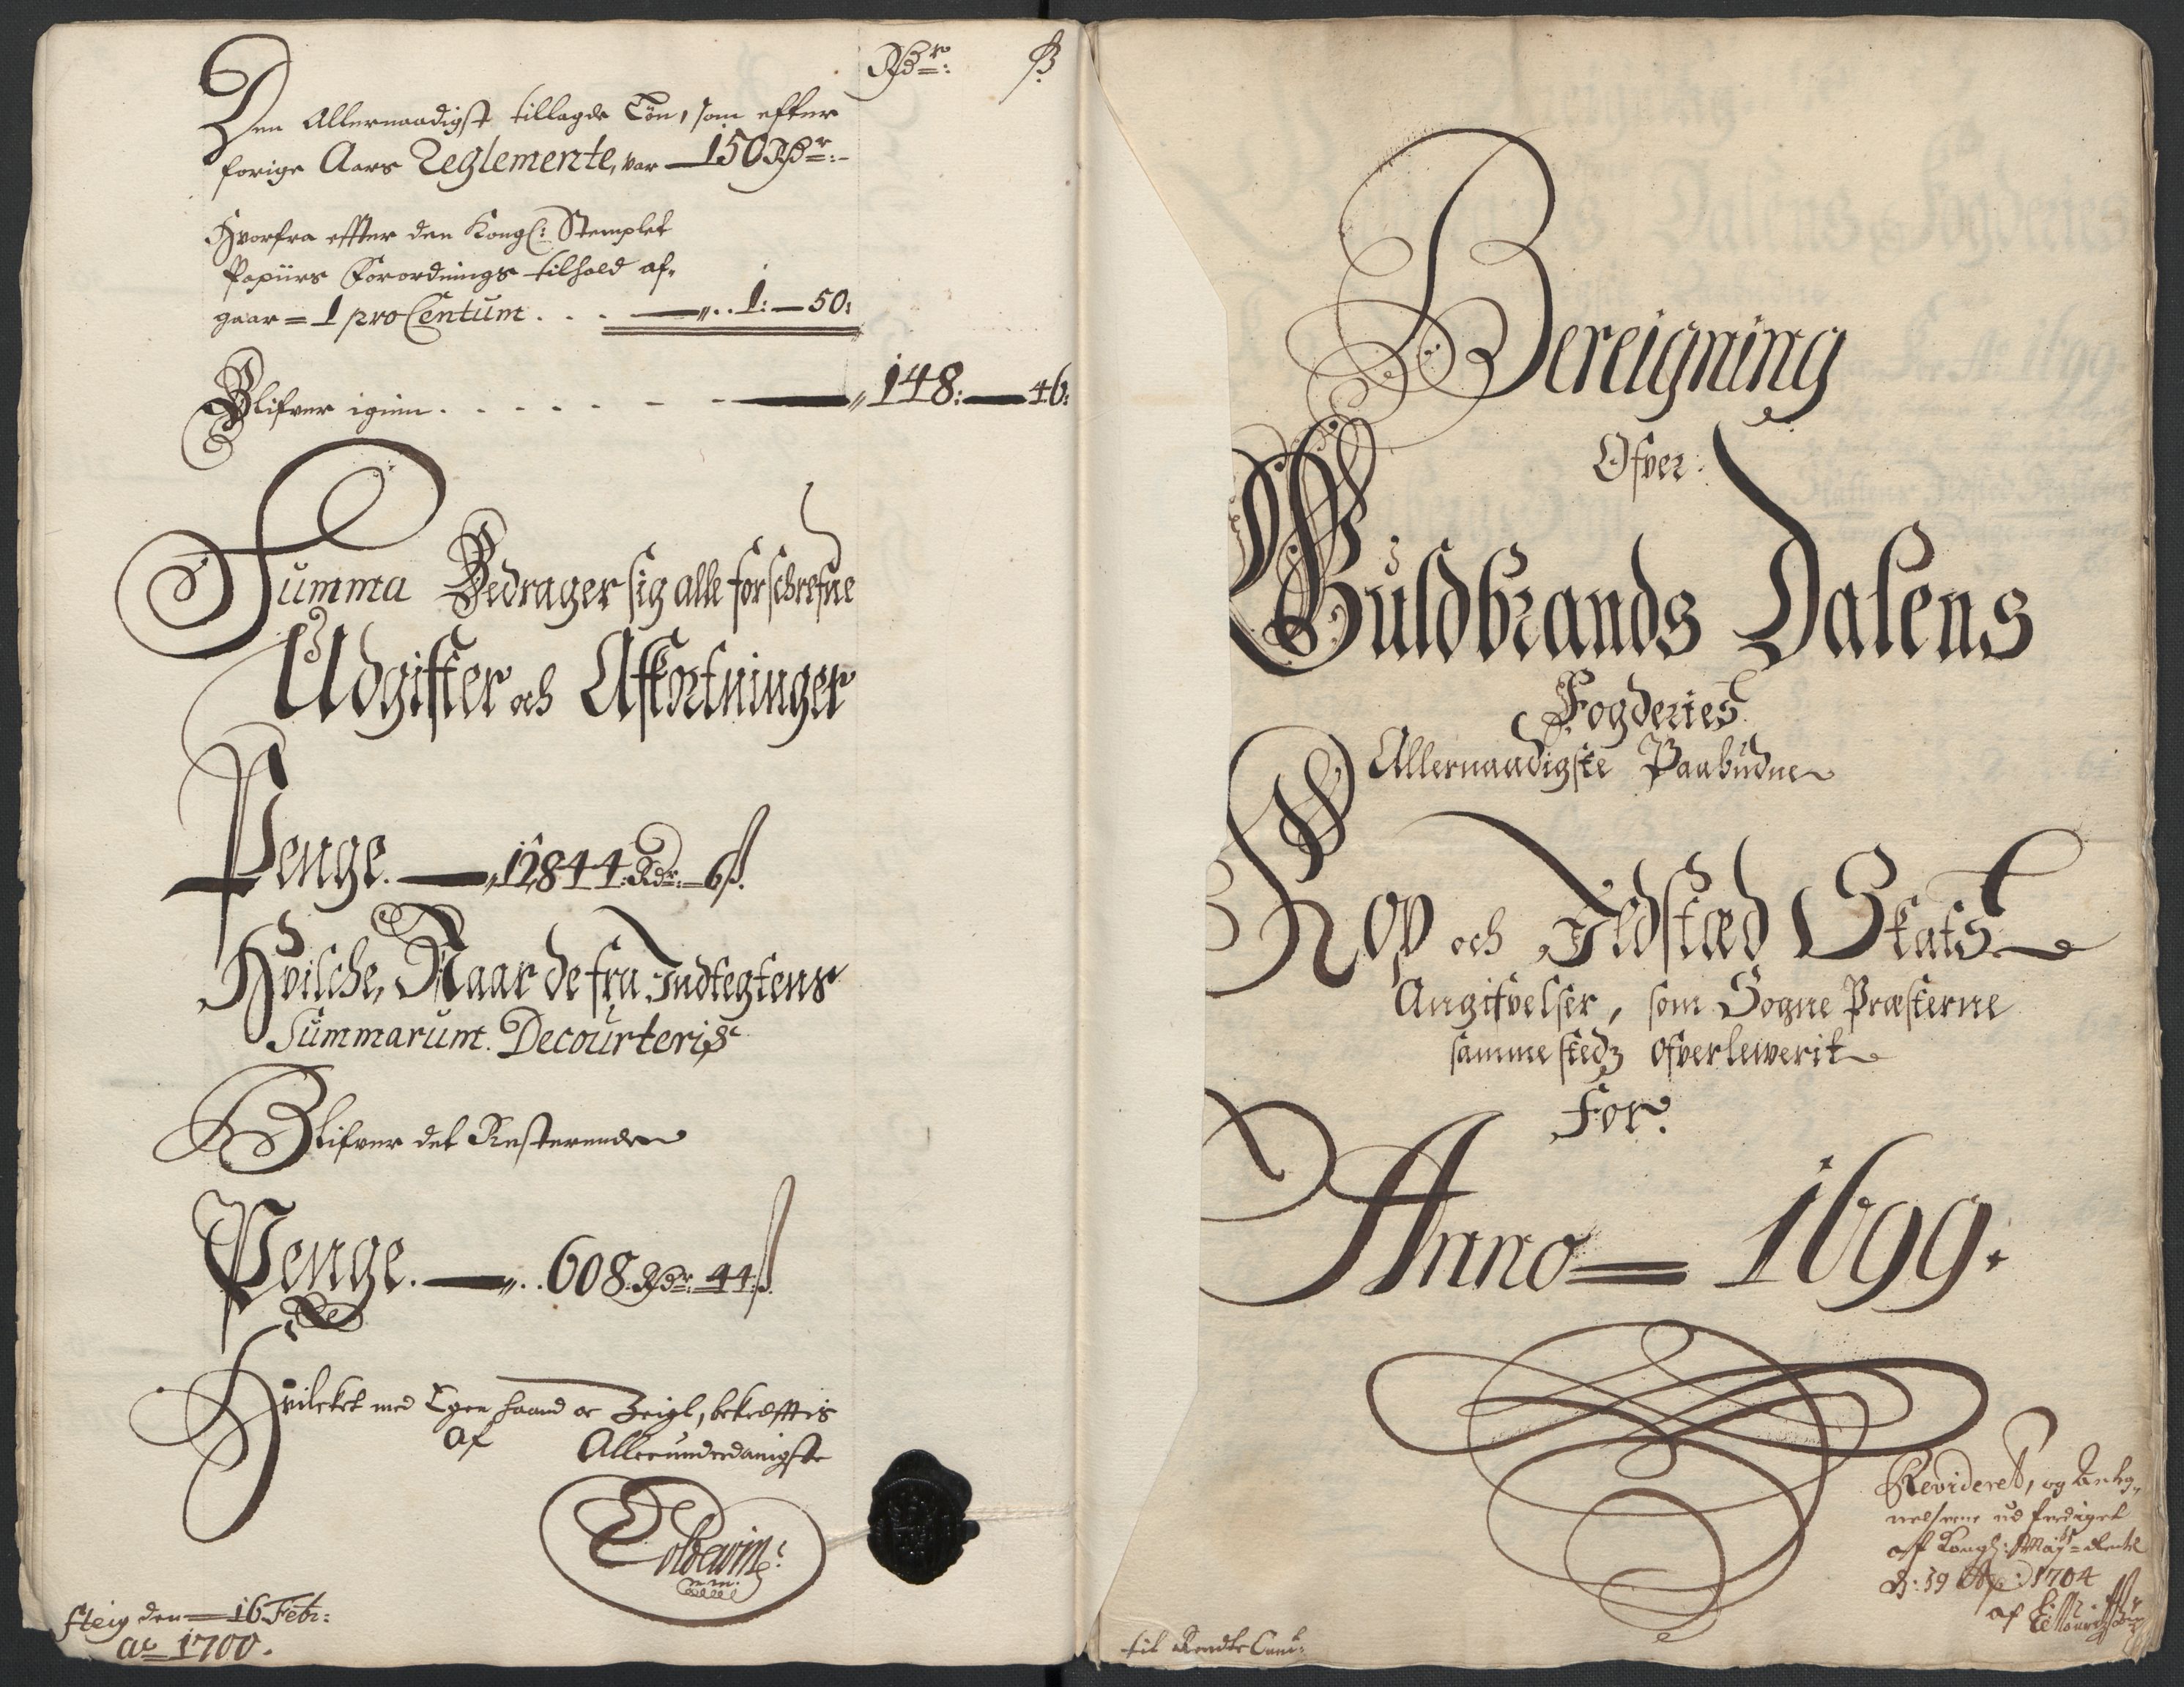 Rdr: ß
Den Allernaadigst tillagde Lön, som efter
forige Aars Reglemente, var 150 Rdr:
Hvorfra effter den Kongl: Stemplet
Papiirs Forordnings tilhold af-
gaar = 1 pro Centum . . . 1: 50:
Blifver igien . . . . . . . 148: 46:
Summa Bedrager sig alle forschrefne
Udgifter och Afkortninger
Penge. 12844: Rdr: 6 ß.
Hvilche, Naar de fra Indtegtens
Summarum Decourteris
Blifver det Resterende
Penge. 608 Rdr: 44 ß.
Hvilcket med Egen haand oc Zeigl, bekrefftis
af Allerunderdanigste
mm.
Steig den 16 Febr:
Ao 1700.
Bereigning
Ofver
Guldbrands Dalens
Fogderies
Allernaadigste Paabudne
Kop och Ildsted Skats
Angifvelser, som Sogne Præsterne
sammestedz ofverlewerit
For
Anno 1699.
Revideret, og Anteg-
nelserne ud ferdiget
aff Kongl: May:ts Rente
d: 19 1704
af
til Rendte Cam: